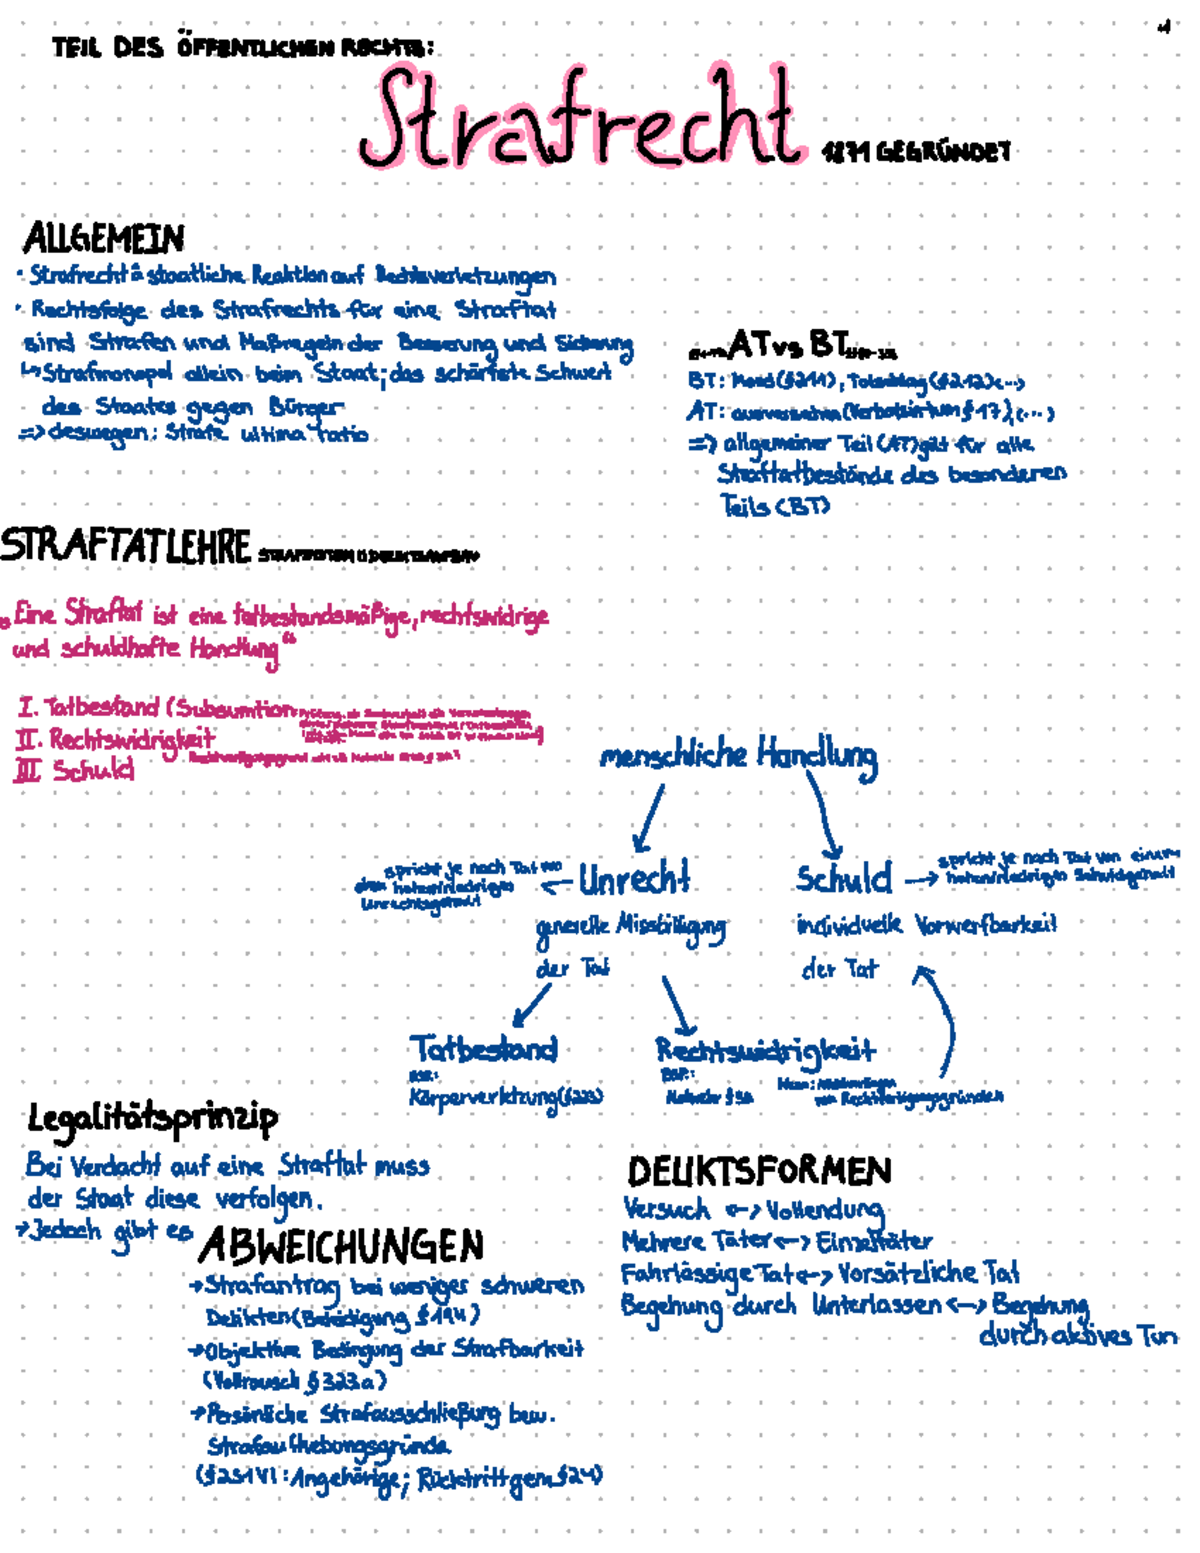 TEIL DES ÖFFENTLICHEN RECHTS:
Strafrecht 1871 GEGRÜNDET
ALLGEMEIN
· Strafrecht ≙ staatliche Reaktion auf Rechtsverletzungen
· Rechtsfolge des Strafrechts für eine Straftat
sind Strafen und Maßregeln der Besserung und Sicherung
↳ Strafmonopol allein beim Staat; das schärfste Schwert
des Staates gegen Bürger
=> deswegen: Strafe ultima ratio
AT vs BT
BT: Mord (§211), Totschlag (§212) (...)
AT: (Verbotsirrtum §17), (...)
=> allgemeiner Teil (AT) gilt für alle
Straftatbestände des besonderen
Teils (BT)
STRAFTATLEHRE
„Eine Straftat ist eine tatbestandsmäßige, rechtswidrige
und schuldhafte Handlung“
I. Tatbestand (Subsumtion
II. Rechtswidrigkeit
III Schuld
menschliche Handlung
spricht je nach Tat von
hohen/niedrigen
Unrechtsgehalt
← Unrecht
Schuld →
spricht je nach Tat von einem
hohen/niedrigen Schuldgehalt
generelle Missbilligung
der Tat
individuelle Vorwerfbarkeit
der Tat
Tatbestand
BSP.:
Körperverletzung (§223)
Rechtswidrigkeit
BSP.:
Notwehr §32
von Rechtfertigungsgründen
Legalitätsprinzip
Bei Verdacht auf eine Straftat muss
der Staat diese verfolgen.
→ Jedoch gibt es
ABWEICHUNGEN
→ Strafantrag bei weniger schweren
Delikten (Beleidigung §194)
→ Objektive Bedingung der Strafbarkeit
(Vollrausch §323a)
→ Persönliche Strafausschließung bzw.
Strafaufhebungsgründe
(§251 VI: Angehörige; Rücktritt gem. §24)
DELIKTSFORMEN
Versuch <-> Vollendung
Mehrere Täter <-> Einzeltäter
Fahrlässige Tat <-> Vorsätzliche Tat
Begehung durch Unterlassen <-> Begehung
durch aktives Tun